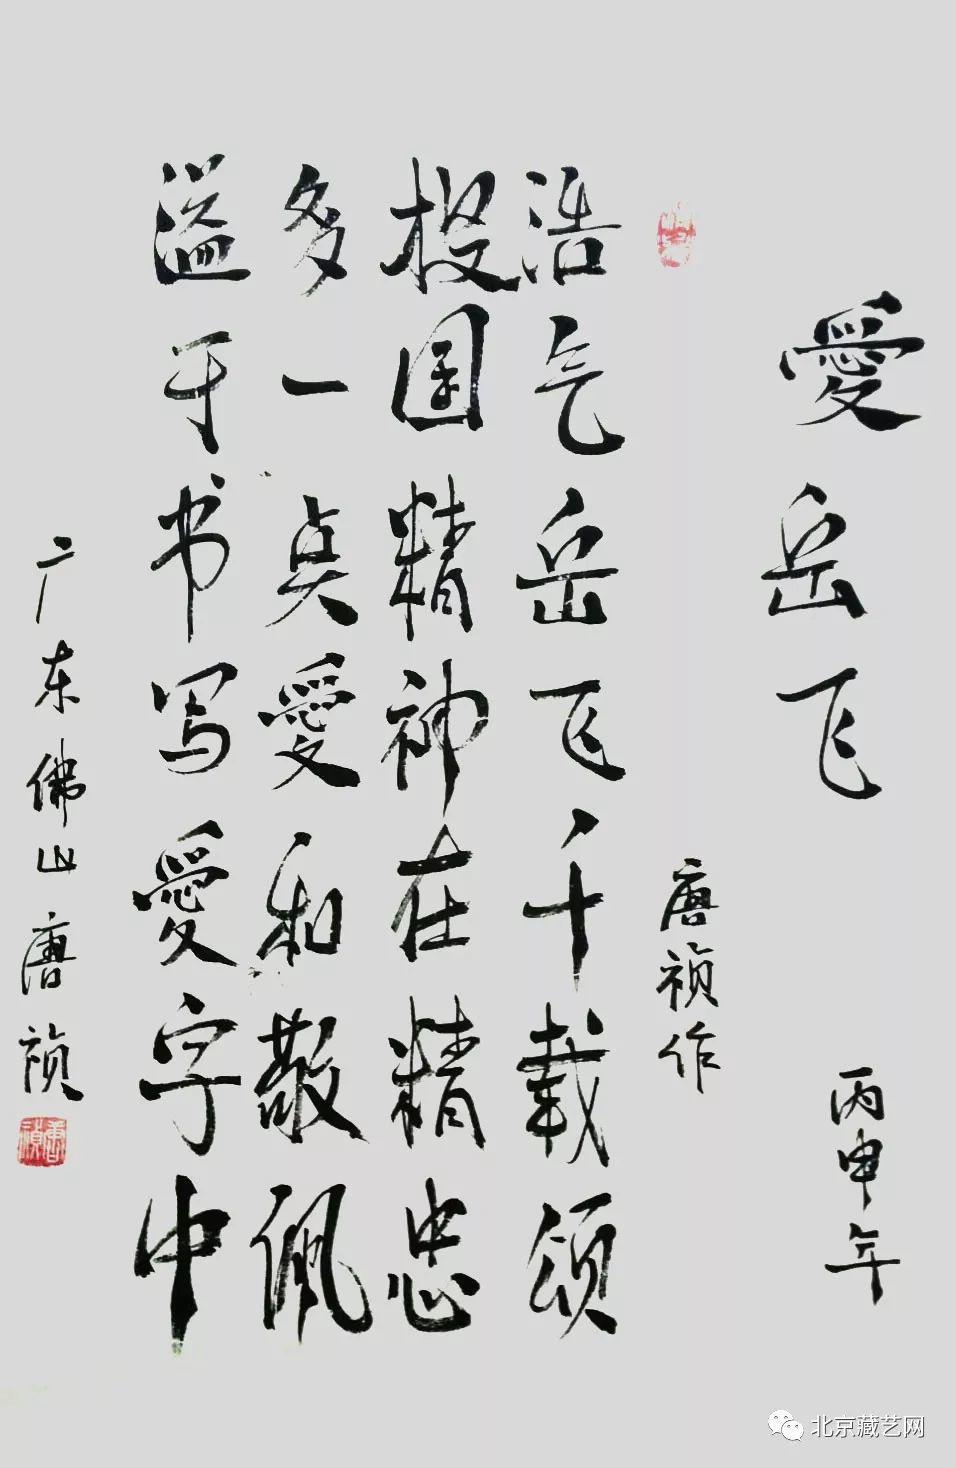 愛岳飞
丙申年
唐祯作
浩气岳飞千载颂
报国精神在精忠
多一点愛和敬佩
溢于书写愛字中
广东佛山唐祯
唐祯
北京藏艺网